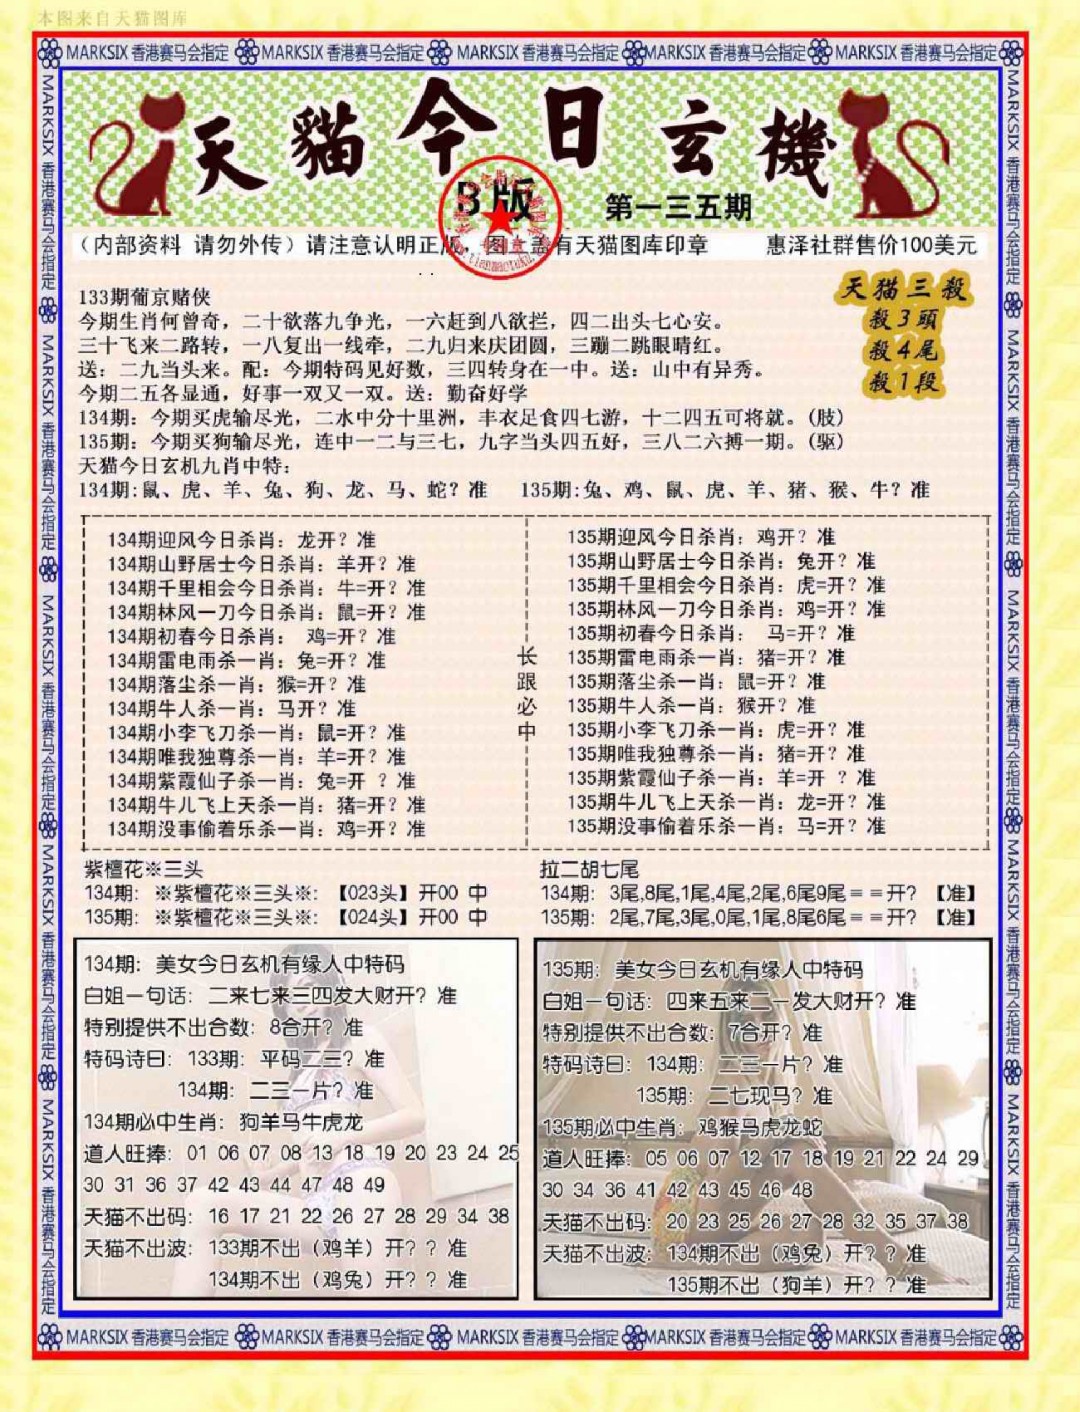 本图来自天猫图库
MARKSIX 香港赛马会指定 MARKSIX 香港赛马会指定 MARKSIX 香港赛马会指定 MARKSIX 香港赛马会指定 MARKSIX 香港赛马会指定
天貓今日玄機
B版 第一三五期
(内部资料 请勿外传) 请注意认明正版,图上盖有天猫图库印章 惠泽社群售价100美元
天猫三殺
殺3頭
殺4尾
殺1段
133期葡京赌侠
今期生肖何曾奇,二十欲落九争光,一六赶到八欲拦,四二出头七心安。
三十飞来二路转,一八复出一线牵,二九归来庆团圆,三蹦二跳眼晴红。
送:二九当头来。配:今期特码见好数,三四转身在一中。送:山中有异秀。
今期二五各显通,好事一双又一双。送:勤奋好学
134期:今期买虎输尽光,二水中分十里洲,丰衣足食四七游,十二四五可将就。(肢)
135期:今期买狗输尽光,连中一二与三七,九字当头四五好,三八二六搏一期。(驱)
天猫今日玄机九肖中特:
134期:鼠、虎、羊、兔、狗、龙、马、蛇?准 135期:兔、鸡、鼠、虎、羊、猪、猴、牛?准
134期迎风今日杀肖:龙开?准
134期山野居士今日杀肖:羊开?准
134期千里相会今日杀肖:牛=开?准
134期林风一刀今日杀肖:鼠=开?准
134期初春今日杀肖: 鸡=开?准
134期雷电雨杀一肖:兔=开?准
134期落尘杀一肖:猴=开?准
134期牛人杀一肖:马开?准
134期小李飞刀杀一肖:鼠=开?准
134期唯我独尊杀一肖:羊=开?准
134期紫霞仙子杀一肖:兔=开 ?准
134期牛儿飞上天杀一肖:猪=开?准
134期没事偷着乐杀一肖:鸡=开?准
长跟必中
135期迎风今日杀肖:鸡开?准
135期山野居士今日杀肖:兔开?准
135期千里相会今日杀肖:虎=开?准
135期林风一刀今日杀肖:鸡=开?准
135期初春今日杀肖: 马=开?准
135期雷电雨杀一肖:猪=开?准
135期落尘杀一肖:鼠=开?准
135期牛人杀一肖:猴开?准
135期小李飞刀杀一肖:虎=开?准
135期唯我独尊杀一肖:猪=开?准
135期紫霞仙子杀一肖:羊=开 ?准
135期牛儿飞上天杀一肖:龙=开?准
135期没事偷着乐杀一肖:马=开?准
紫檀花※三头
134期: ※紫檀花※三头※: 【023头】开00 中
135期: ※紫檀花※三头※: 【024头】开00 中
拉二胡七尾
134期: 3尾,8尾,1尾,4尾,2尾,6尾9尾==开? 【准】
135期: 2尾,7尾,3尾,0尾,1尾,8尾6尾==开? 【准】
134期:美女今日玄机有缘人中特码
白姐一句话:二来七来三四发大财开?准
特别提供不出合数:8合开?准
特码诗曰:133期:平码二三?准
134期:二三一片?准
134期必中生肖:狗羊马牛虎龙
道人旺捧:01 06 07 08 13 18 19 20 23 24 25
30 31 36 37 42 43 44 47 48 49
天猫不出码:16 17 21 22 26 27 28 29 34 38
天猫不出波:133期不出(鸡羊)开??准
134期不出(鸡兔)开??准
135期:美女今日玄机有缘人中特码
白姐一句话:四来五来二一发大财开?准
特别提供不出合数:7合开?准
特码诗曰:134期:二三一片?准
135期:二七现马?准
135期必中生肖:鸡猴马虎龙蛇
道人旺捧:05 06 07 12 17 18 19 21 22 24 29
30 34 36 41 42 43 45 46 48
天猫不出码:20 23 25 26 27 28 32 35 37 38
天猫不出波:134期不出(鸡兔)开??准
135期不出(狗羊)开??准
MARKSIX 香港赛马会指定 MARKSIX 香港赛马会指定 MARKSIX 香港赛马会指定 MARKSIX 香港赛马会指定 MARKSIX 香港赛马会指定